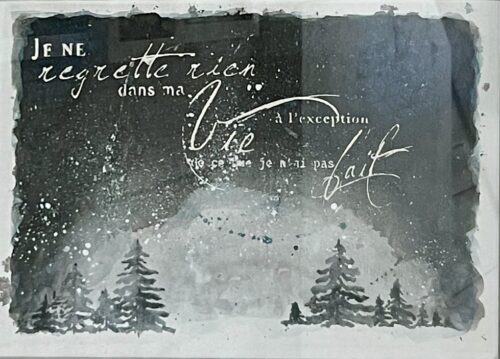 JE NE
regrette rien
dans ma
Vie à l'exception
de ce que je n'ai pas fait